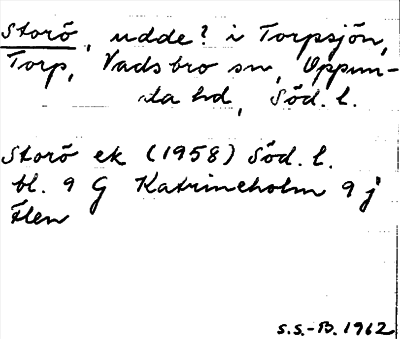 Storö, udde? i Torpsjön,
Torp, Vadsbro sn, Oppun-
da hd, Söd. l.
Storö ek (1958) Söd. l.
bl. 9 G Katrineholm 9 j
Flen
S.S.-B. 1962